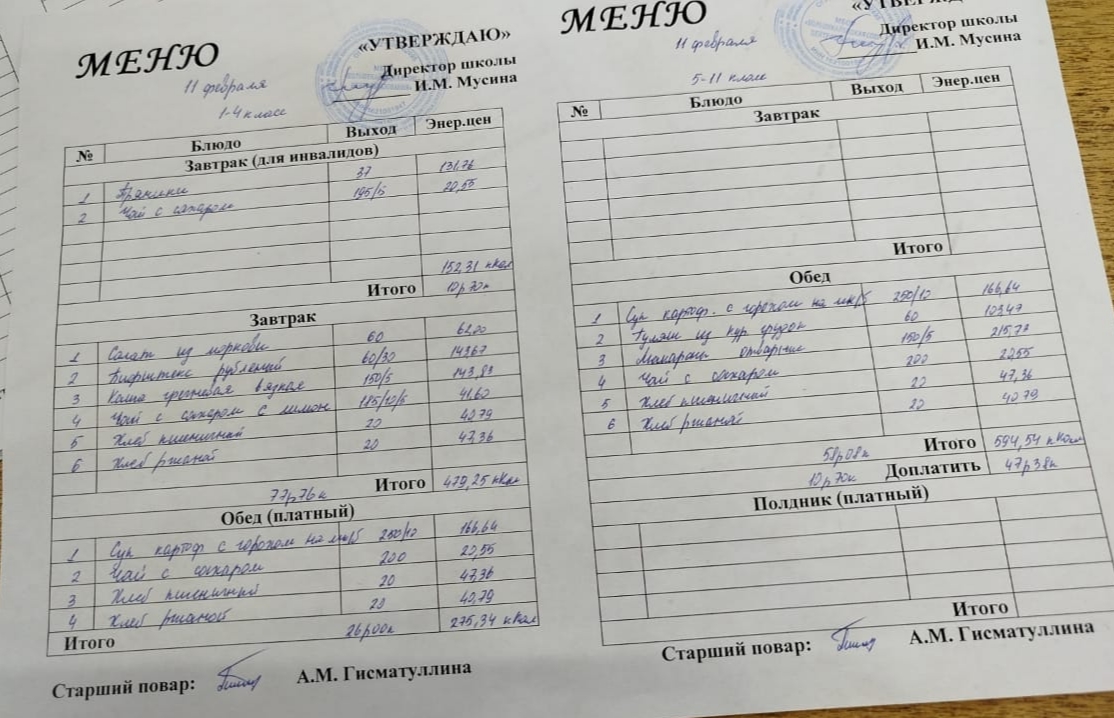 МЕНЮ
«УТВЕРЖДАЮ»
Директор школы
И.М. Мусина
11 февраля
1-4 классе
№ Блюдо Выход Энер.цен
Завтрак (для инвалидов)
1 Пряники 37 131,76
2 Чай с сахаром 195/5 20,55
152,31 кКал
Итого 10р70к
Завтрак
1 Салат из моркови 60 62,00
2 Бифштекс рубленый 60/30 143,67
3 Каша гречневая вязкая 150/5 143,83
4 Чай с сахаром с лимон 115/10/5 41,60
5 Хлеб пшеничный 20 40,79
6 Хлеб ржаной 20 47,36
77р76к Итого 479,25 кКал
Обед (платный)
1 Суп картоф с горохом на мк/б 250/10 166,64
2 Чай с сахаром 200 20,55
3 Хлеб пшеничный 20 47,36
4 Хлеб ржаной 20 40,79
Итого 26р00к 275,34 кКал
Старший повар: А.М. Гисматуллина
МЕНЮ
Директор школы
И.М. Мусина
11 февраля
5-11 класс
№ Блюдо Выход Энер.цен
Завтрак
Итого
Обед
1 Суп картоф. с горохом на мк/б 250/10 166,64
2 Гуляш из кур грудок 60 103,47
3 Макароны отварные 150/5 215,73
4 Чай с сахаром 200 20,55
5 Хлеб пшеничный 20 47,36
6 Хлеб ржаной 20 40,79
58р08к Итого 594,54 кКал
10р70к Доплатить 47р38к
Полдник (платный)
Итого
Старший повар: А.М. Гисматуллина